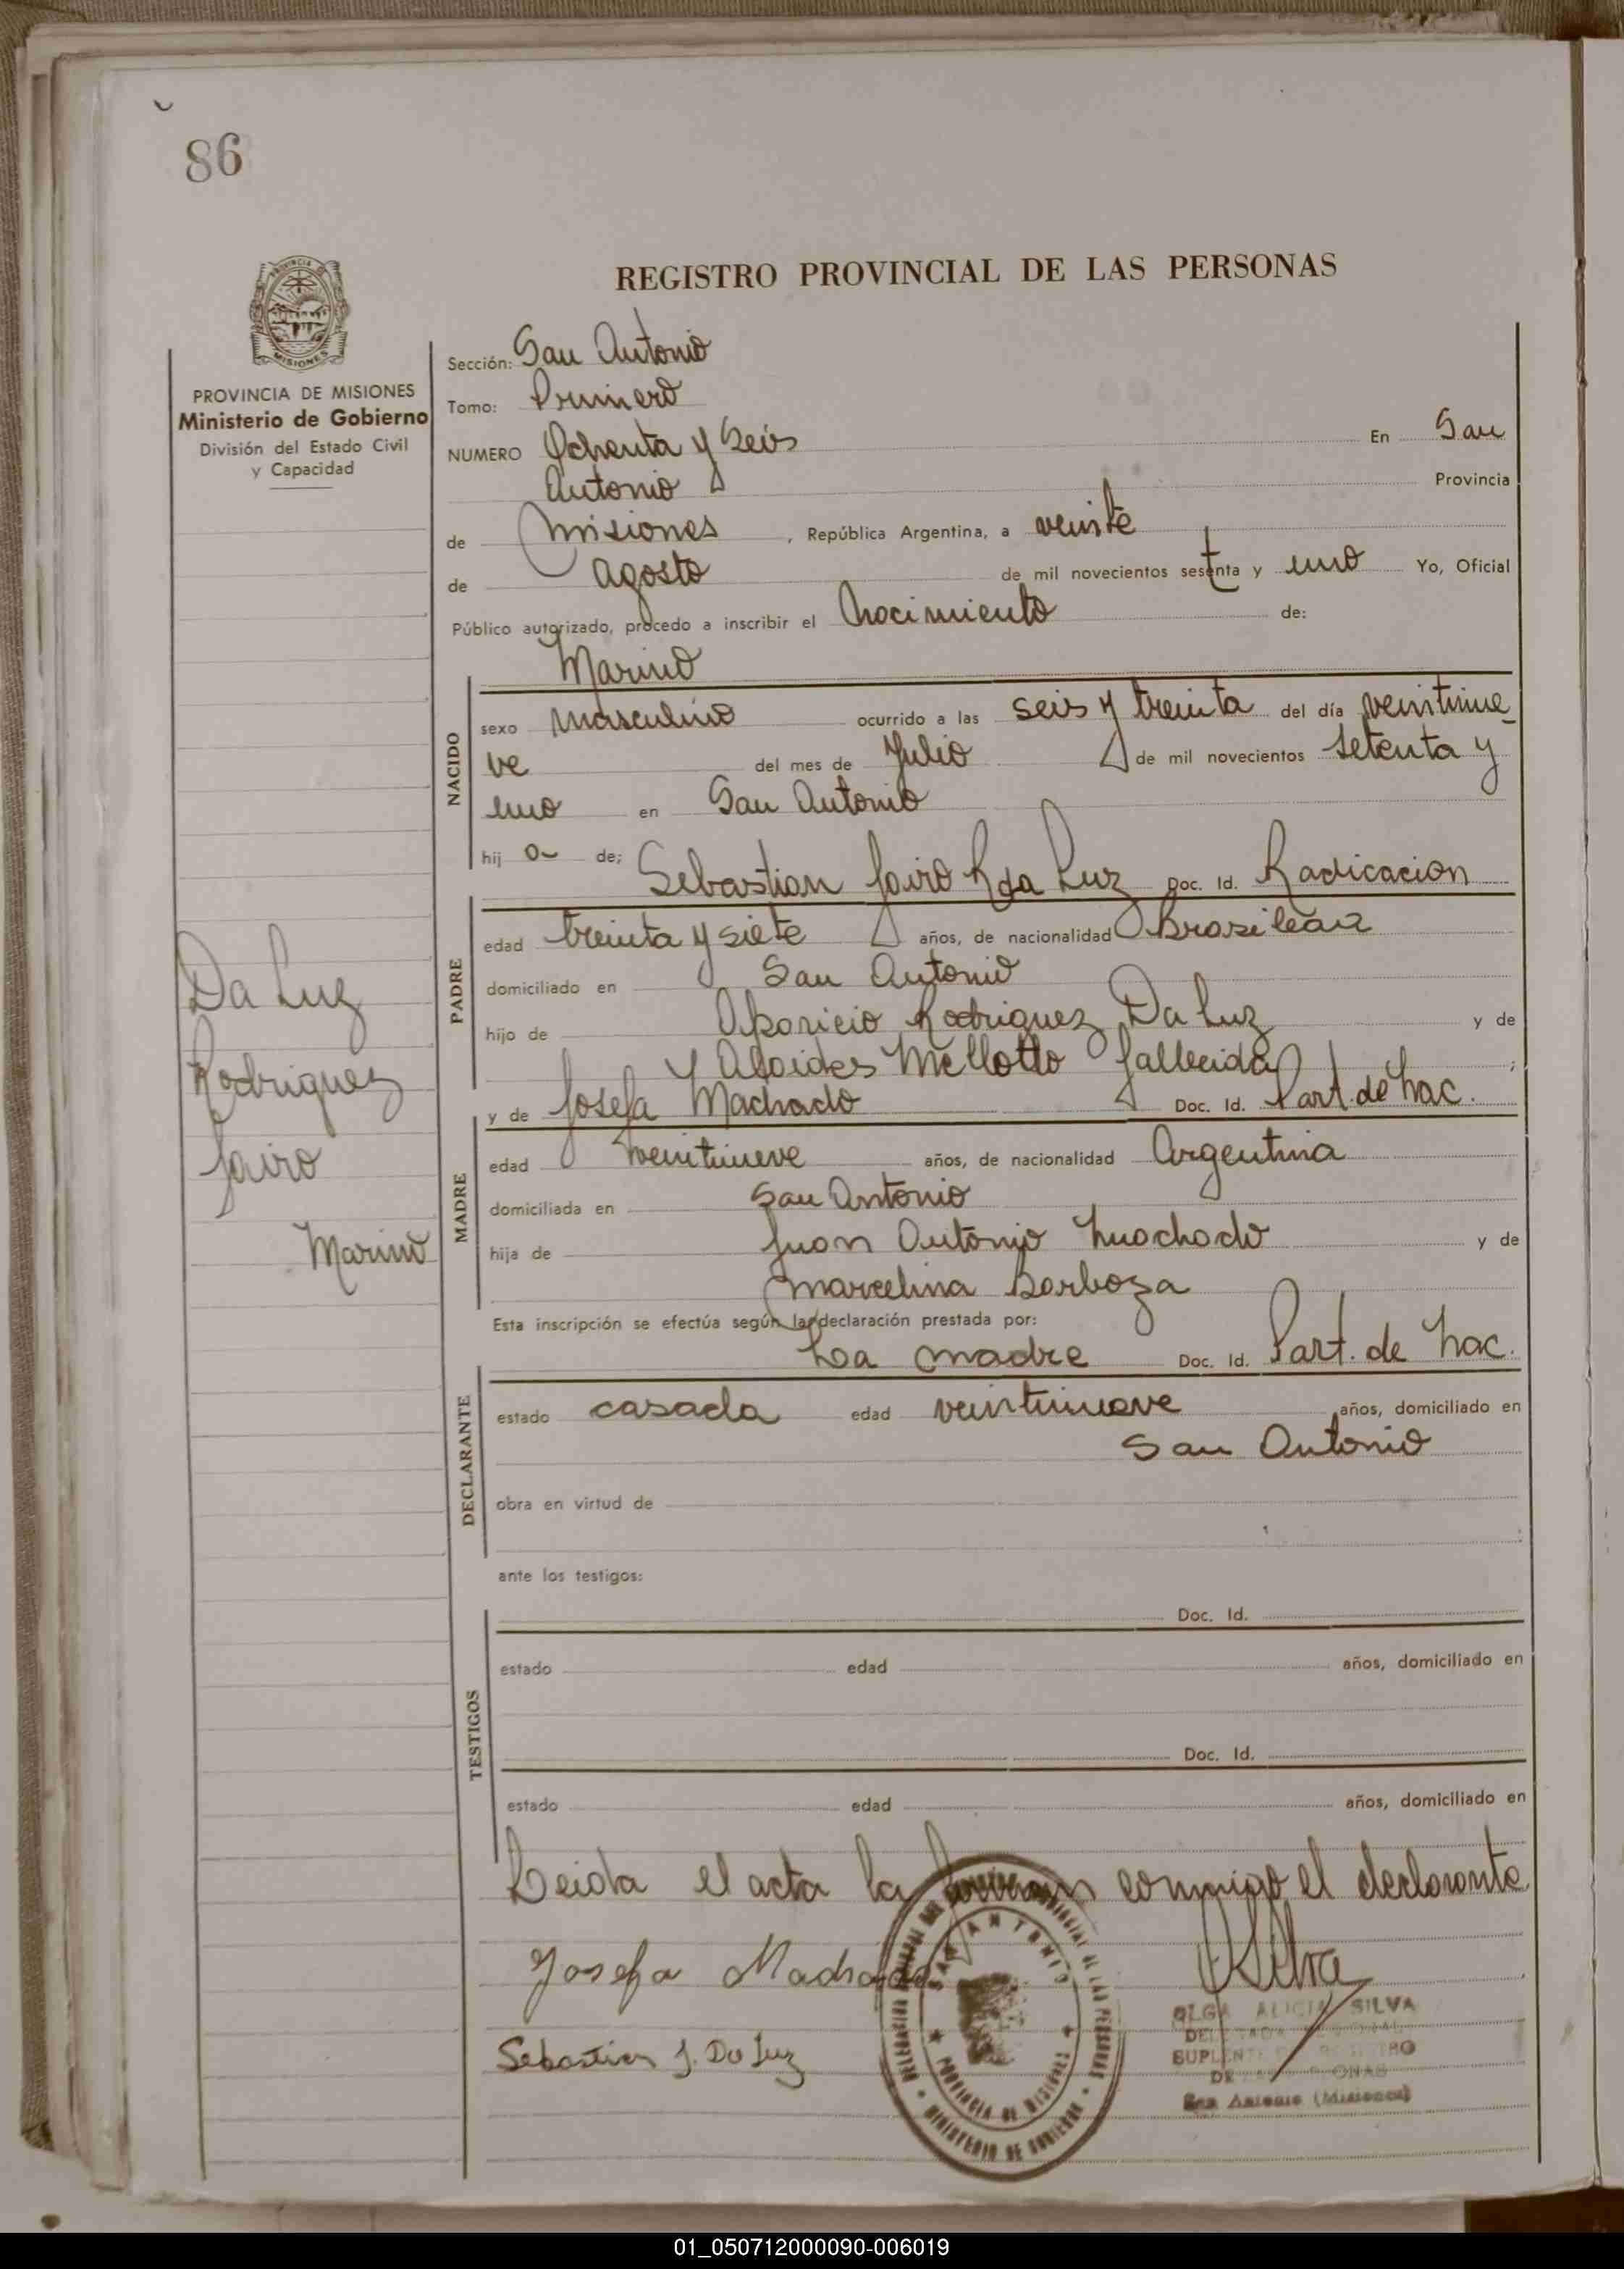 86
REGISTRO PROVINCIAL DE LAS PERSONAS
PROVINCIA DE MISIONES
Ministerio de Gobierno
División del Estado Civil
y Capacidad
Sección: San Antonio
Tomo: Primero
NUMERO Ochenta y Seis En San
Antonio Provincia
de Misiones , República Argentina, a veinte
de Agosto de mil novecientos setenta y uno Yo, Oficial
Público autorizado, procedo a inscribir el Nacimiento de:
Marino
NACIDO
sexo masculino ocurrido a las seis y treinta del día veintinue_
ve del mes de Julio de mil novecientos setenta y
uno en San Antonio
hij o de; Sebastian Jairo R da Luz Doc. Id. Radicacion
PADRE
edad treinta y siete años, de nacionalidad Brasilera
domiciliado en San Antonio
hijo de Aparicio Rodriguez Da Luz y de
y Alcides Mellotto fallecida ;
y de Josefa Machado Doc. Id. Part. de Nac.
MADRE
edad veintinueve años, de nacionalidad Argentina
domiciliada en San Antonio
hija de Juan Antonio Machado y de
Marcelina Borboza
Esta inscripción se efectúa según la declaración prestada por:
La Madre Doc. Id. Part. de Nac.
DECLARANTE
estado casada edad veintinueve años, domiciliado en
San Antonio
obra en virtud de
ante los testigos:
TESTIGOS
Doc. Id.
estado edad años, domiciliado en
Doc. Id.
estado edad años, domiciliado en
Leida el acta la firman conmigo el declarante
Josefa Machado
Sebastian J. Da Luz
Da Luz
Rodriguez
Jairo
Marino
SAN ANTONIO
PROVINCIA DE MISIONES
MINISTERIO DE GOBIERNO
OSilva
OLGA ALICIA SILVA
SUPLENTE
San Antonio (Misiones)
01_050712000090-006019